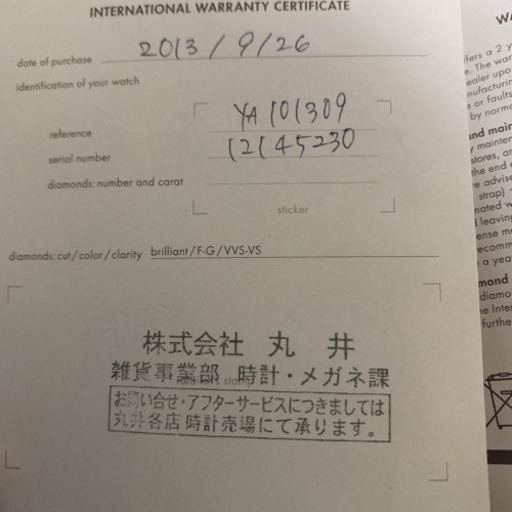 INTERNATIONAL WARRANTY CERTIFICATE
date of purchase 2013/9/26
identification of your watch
reference YA101309
serial number 12145230
diamonds: number and carat
sticker
diamonds: cut/color/clarity brilliant/F-G/VVS-VS
株式会社 丸井
雑貨事業部 時計・メガネ課
お買い合せ・アフターサービスにつきましては
丸井各店時計売場にて承ります。
fers a 2 y
e. The war
ealer upo
nufacturin
s or faults
by norma
nd main
mainten
stores, ar
the end
e advise
strap)
nated w
leaving
ense me
ecomm
a yea
mond
diamo
e Inter
furthe